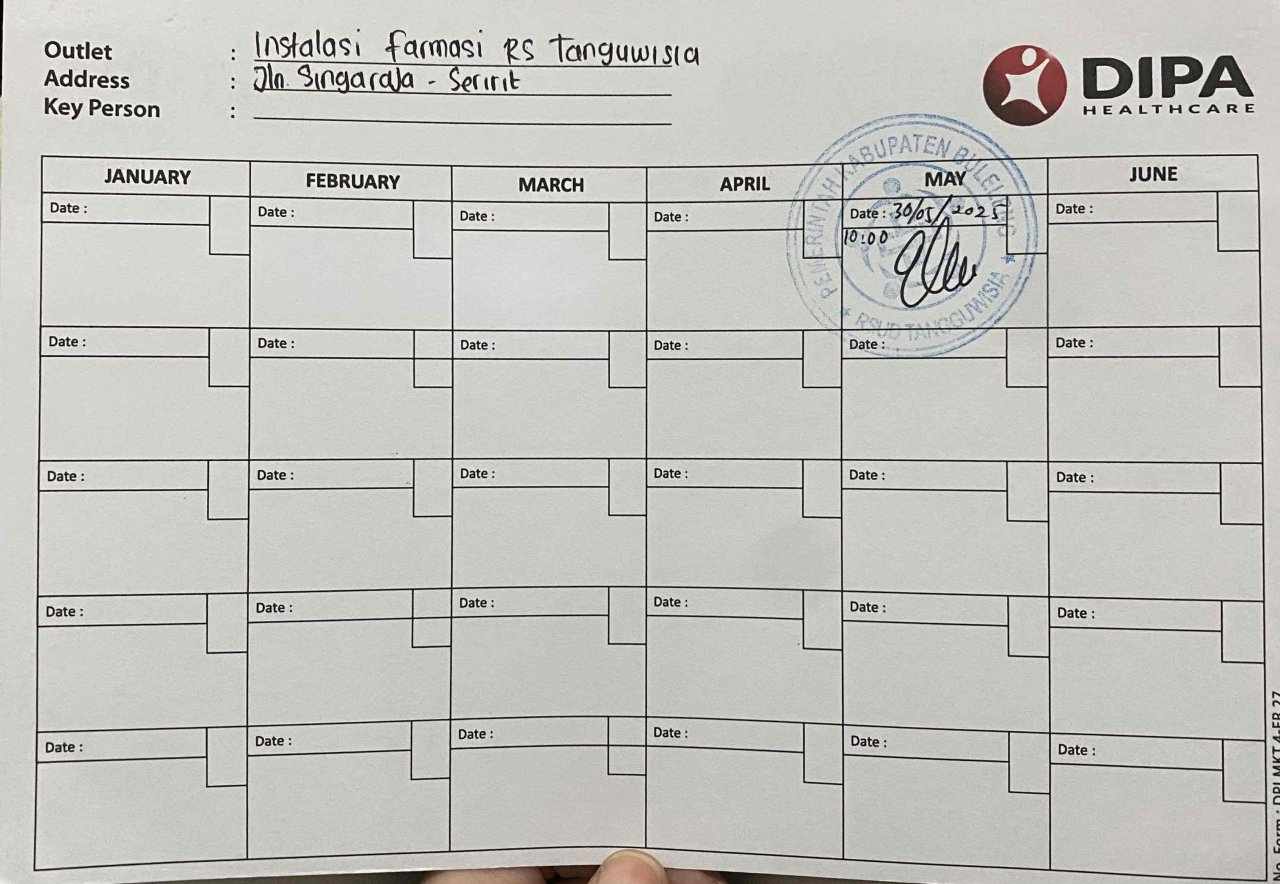 Outlet : Instalasi farmasi RS Tanguwisia
Address : Jln. Singaraja - Seririt
Key Person :
DIPA
HEALTHCARE
JANUARY FEBRUARY MARCH APRIL MAY JUNE
Date : Date : Date : Date : Date : 30/05/2025 Date :
10:00
PEMERINTAH KABUPATEN BULELENG
* RSUD TANGGUWISIA *
Date : Date : Date : Date : Date : Date :
Date : Date : Date : Date : Date : Date :
Date : Date : Date : Date : Date : Date :
Date : Date : Date : Date : Date : Date :
No. Form : DPI.MKT.4-FR.27